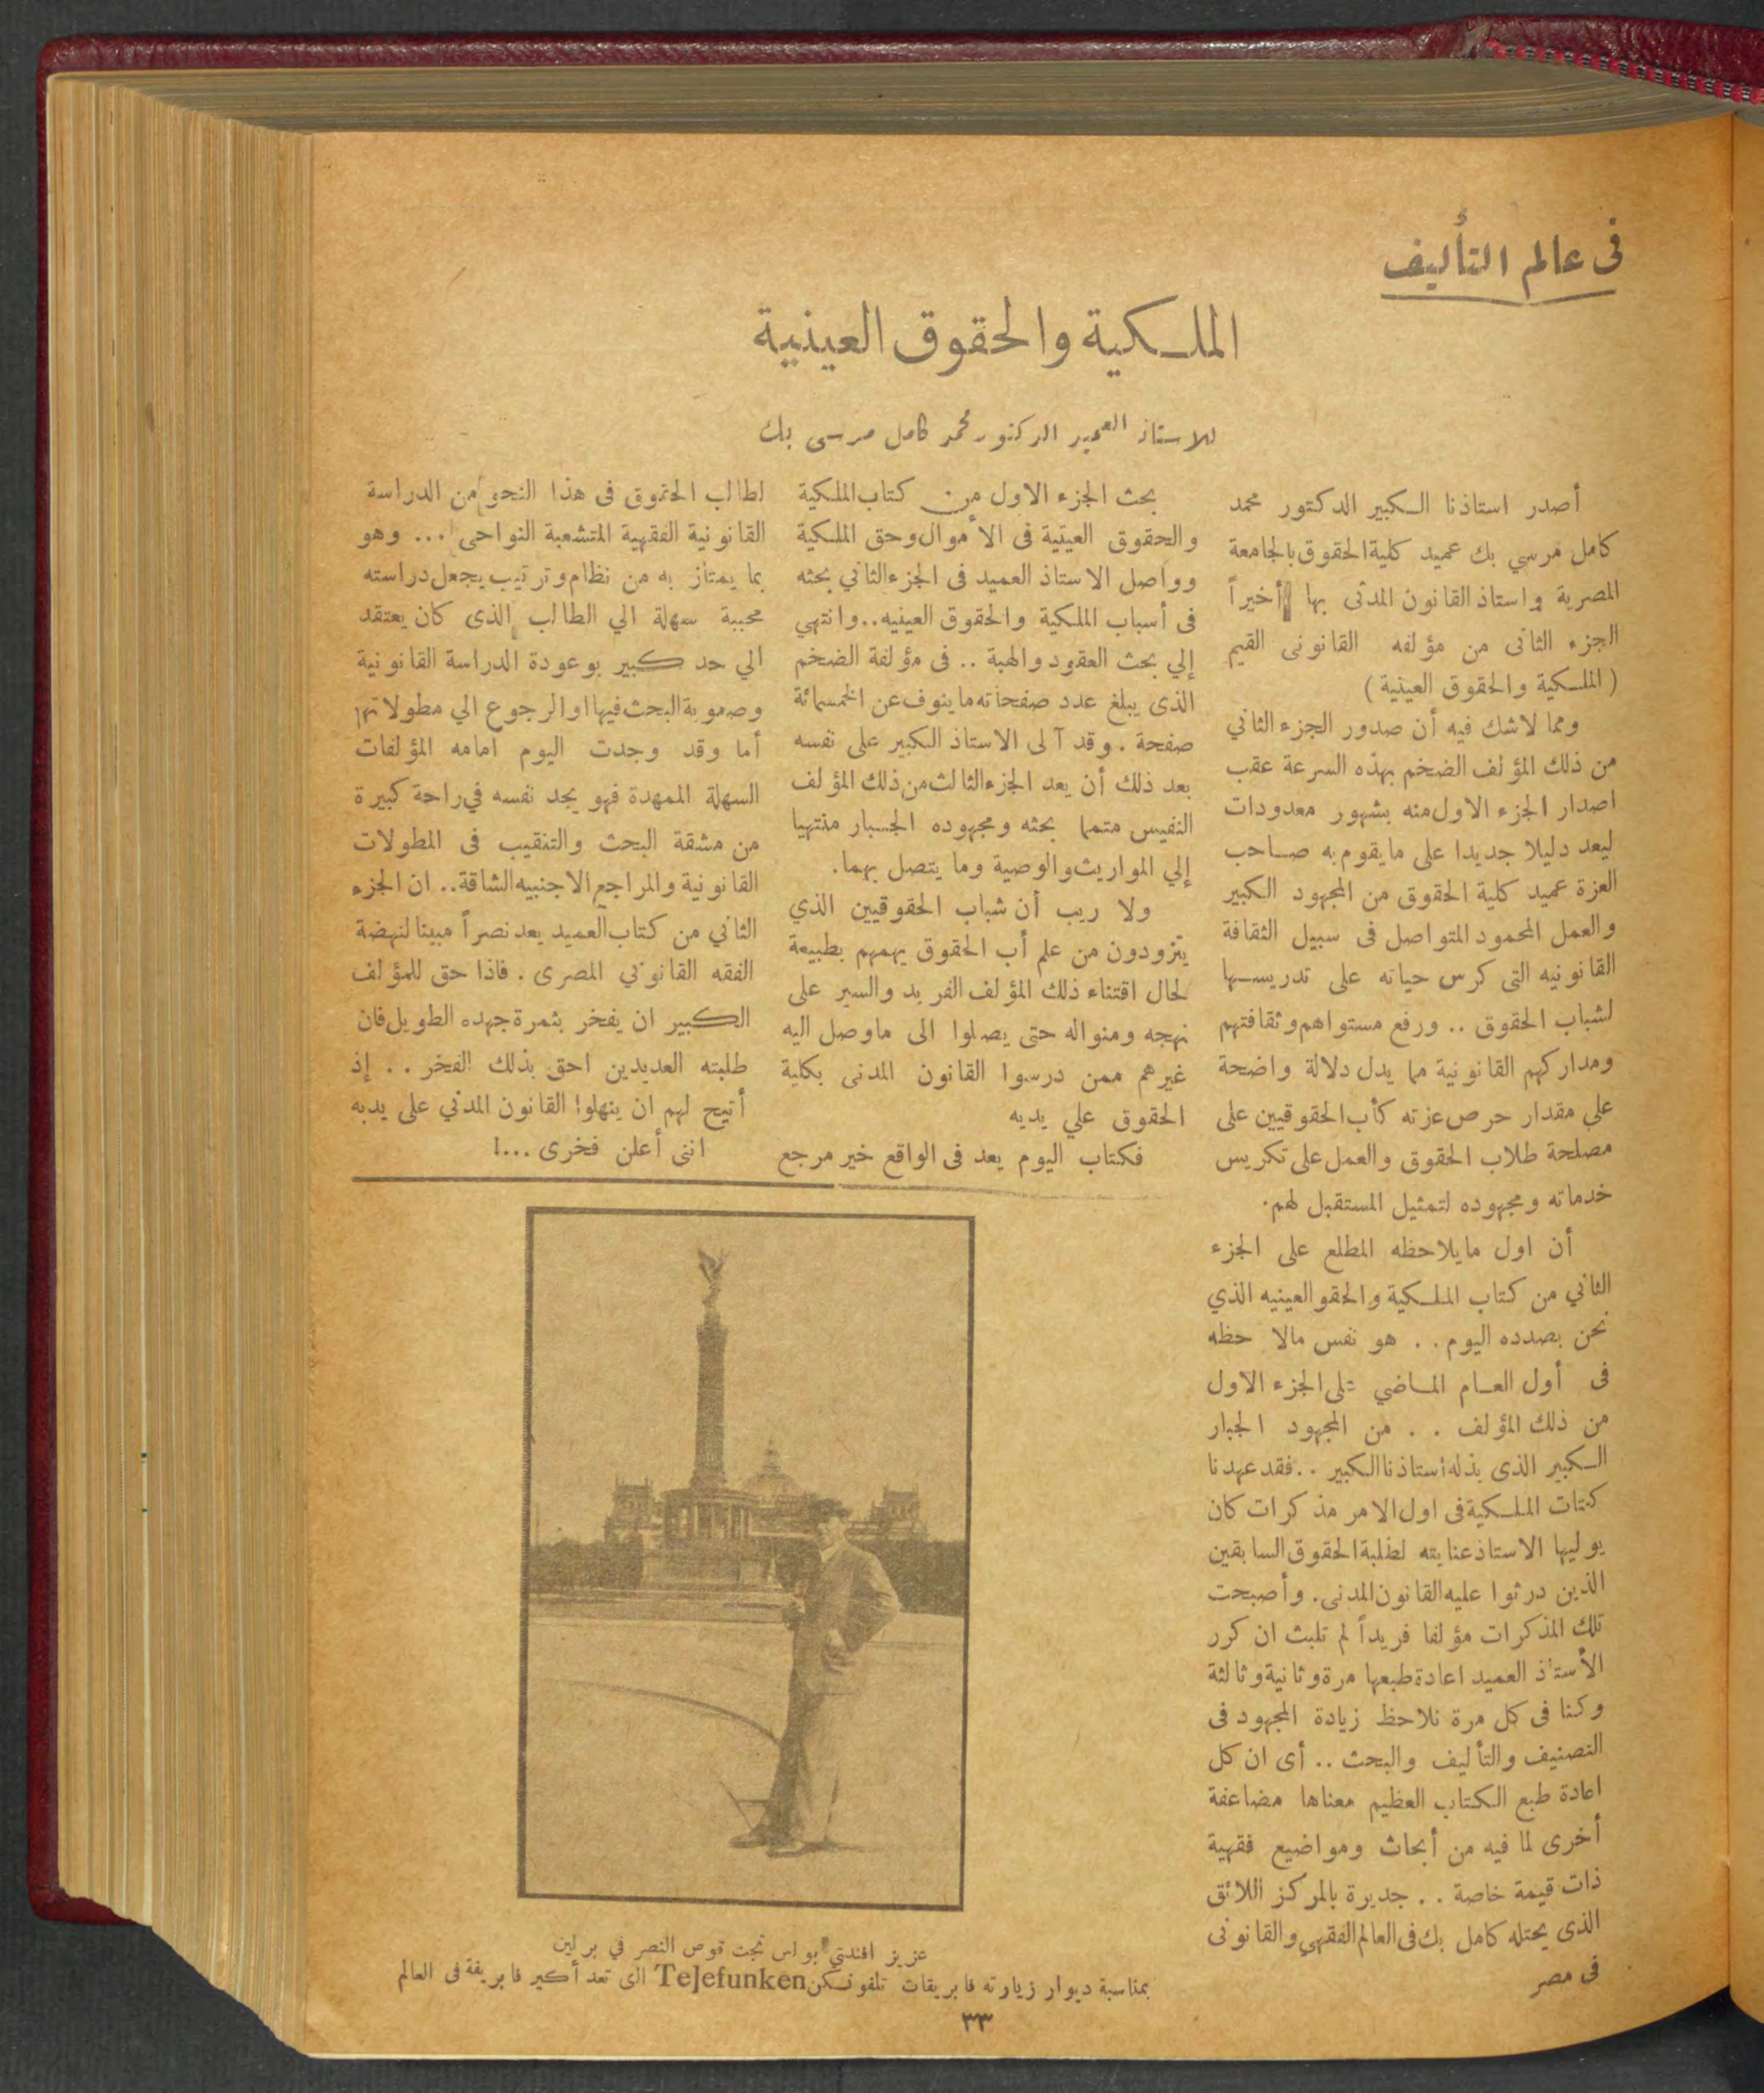 فى عالم التأليف
الملكية والحقوق العينية
للاستاذ العميد الدكتور محمد كامل مرسى بك
أصدر استاذنا الكبير الدكتور محمد
كامل مرسي بك عميد كلية الحقوق بالجامعة
المصرية واستاذ القانون المدنى بها أخيراً
الجزء الثانى من مؤلفه القانونى القيم
( الملكية والحقوق العينية )
ومما لاشك فيه أن صدور الجزء الثاني
من ذلك المؤلف الضخم بهذه السرعة عقب
اصدار الجزء الاول منه بشهور معدودات
ليعد دليلا جديدا على مايقوم به صاحب
العزة عميد كلية الحقوق من المجهود الكبير
والعمل المحمود المتواصل فى سبيل الثقافة
القانونيه التى كرس حياته على تدريسها
لشباب الحقوق .. ورفع مستواهم وثقافتهم
ومداركهم القانونية مما يدل دلالة واضحة
على مقدار حرص عزته كأب الحقوقيين على
مصلحة طلاب الحقوق والعمل على تكريس
خدماته ومجهوده لتمثيل المستقبل لهم.
أن اول مايلاحظه المطلع على الجزء
الثاني من كتاب الملكية والحقو العينيه الذي
نحن بصدده اليوم . . هو نفس مالا حظه
فى أول العام الماضي على الجزء الاول
من ذلك المؤلف . . من المجهود الجبار
الكبير الذى بذله استاذنا الكبير . . فقد عهدنا
كتات الملكية فى اول الامر مذكرات كان
يوليها الاستاذ عنايته لطلبة الحقوق السابقين
الذين درثوا عليه القانون المدنى. وأصبحت
تلك المذكرات مؤلفا فريداً لم تلبث ان كرر
الأستاذ العميد اعادة طبعها مرة وثانية وثالثة
وكنا فى كل مرة نلاحظ زيادة المجهود فى
التصنيف والتأليف والبحث .. أى ان كل
اعادة طبع الكتاب العظيم معناها مضاعفة
أخرى لما فيه من أبحاث ومواضيع فقهية
ذات قيمة خاصة . . جديرة بالمركز اللائق
الذى يحتله كامل بك فى العالم الفقهي والقانونى
فى مصر
بحث الجزء الاول من كتاب الملكية
والحقوق العينية فى الأموال وحق الملكية
وواصل الاستاذ العميد فى الجزء الثاني بحثه
فى أسباب الملكية والحقوق العينيه.. وانتهي
إلي بحث العقود والهبة .. فى مؤلفة الضخم
الذى يبلغ عدد صفحاته ما ينوف عن الخمسمائة
صفحة . وقد آلى الاستاذ الكبير على نفسه
بعد ذلك أن يعد الجزء الثالث من ذلك المؤلف
النفيس متمما بحثه ومجهوده الجبار منتهيا
إلي المواريث والوصية وما يتصل بهما.
ولا ريب أن شباب الحقوقيين الذي
يتزودون من علم أب الحقوق يهمهم بطبيعة
لحال اقتناء ذلك المؤلف الفريد والسير على
نهجه ومنواله حتى يصلوا الى ماوصل اليه
غيرهم ممن درسوا القانون المدنى بكلية
الحقوق علي يديه
فكتاب اليوم يعد فى الواقع خير مرجع
لطالب الحقوق فى هذا النحو من الدراسة
القانونية الفقهية المتشعبة النواحى ... وهو
بما يمتاز به من نظام وترتيب يجعل دراسته
محببة سهلة الي الطالب الذى كان يعتقد
الي حد كبير بوعودة الدراسة القانونية
وصعوبة البحث فيها او الرجوع الي مطولاتها
أما وقد وجدت اليوم امامه المؤلفات
السهلة الممهدة فهو يجد نفسه في راحة كبيرة
من مشقة البحث والتنقيب فى المطولات
القانونية والمراجع الاجنبيه الشاقة.. ان الجزء
الثاني من كتاب العميد يعد نصراً مبينا لنهضة
الفقه القانوني المصرى . فاذا حق للمؤلف
الكبير ان يفخر بثمرة جهده الطويل فان
طلبته العديدين احق بذلك الفخر . . إذ
أتيح لهم ان ينهلوا القانون المدني على يديه
اننى أعلن فخرى ...!
عزيز افندي بولس تحت قوص النصر في برلين
بمناسبة ديوار زيارته فابريقات تلفونكن Telefunken التى تعد أكبر فابريقة فى العالم
٣٣